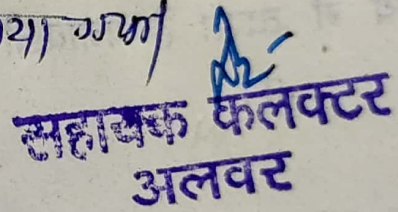 या गया
सहायक कलक्टर
अलवर